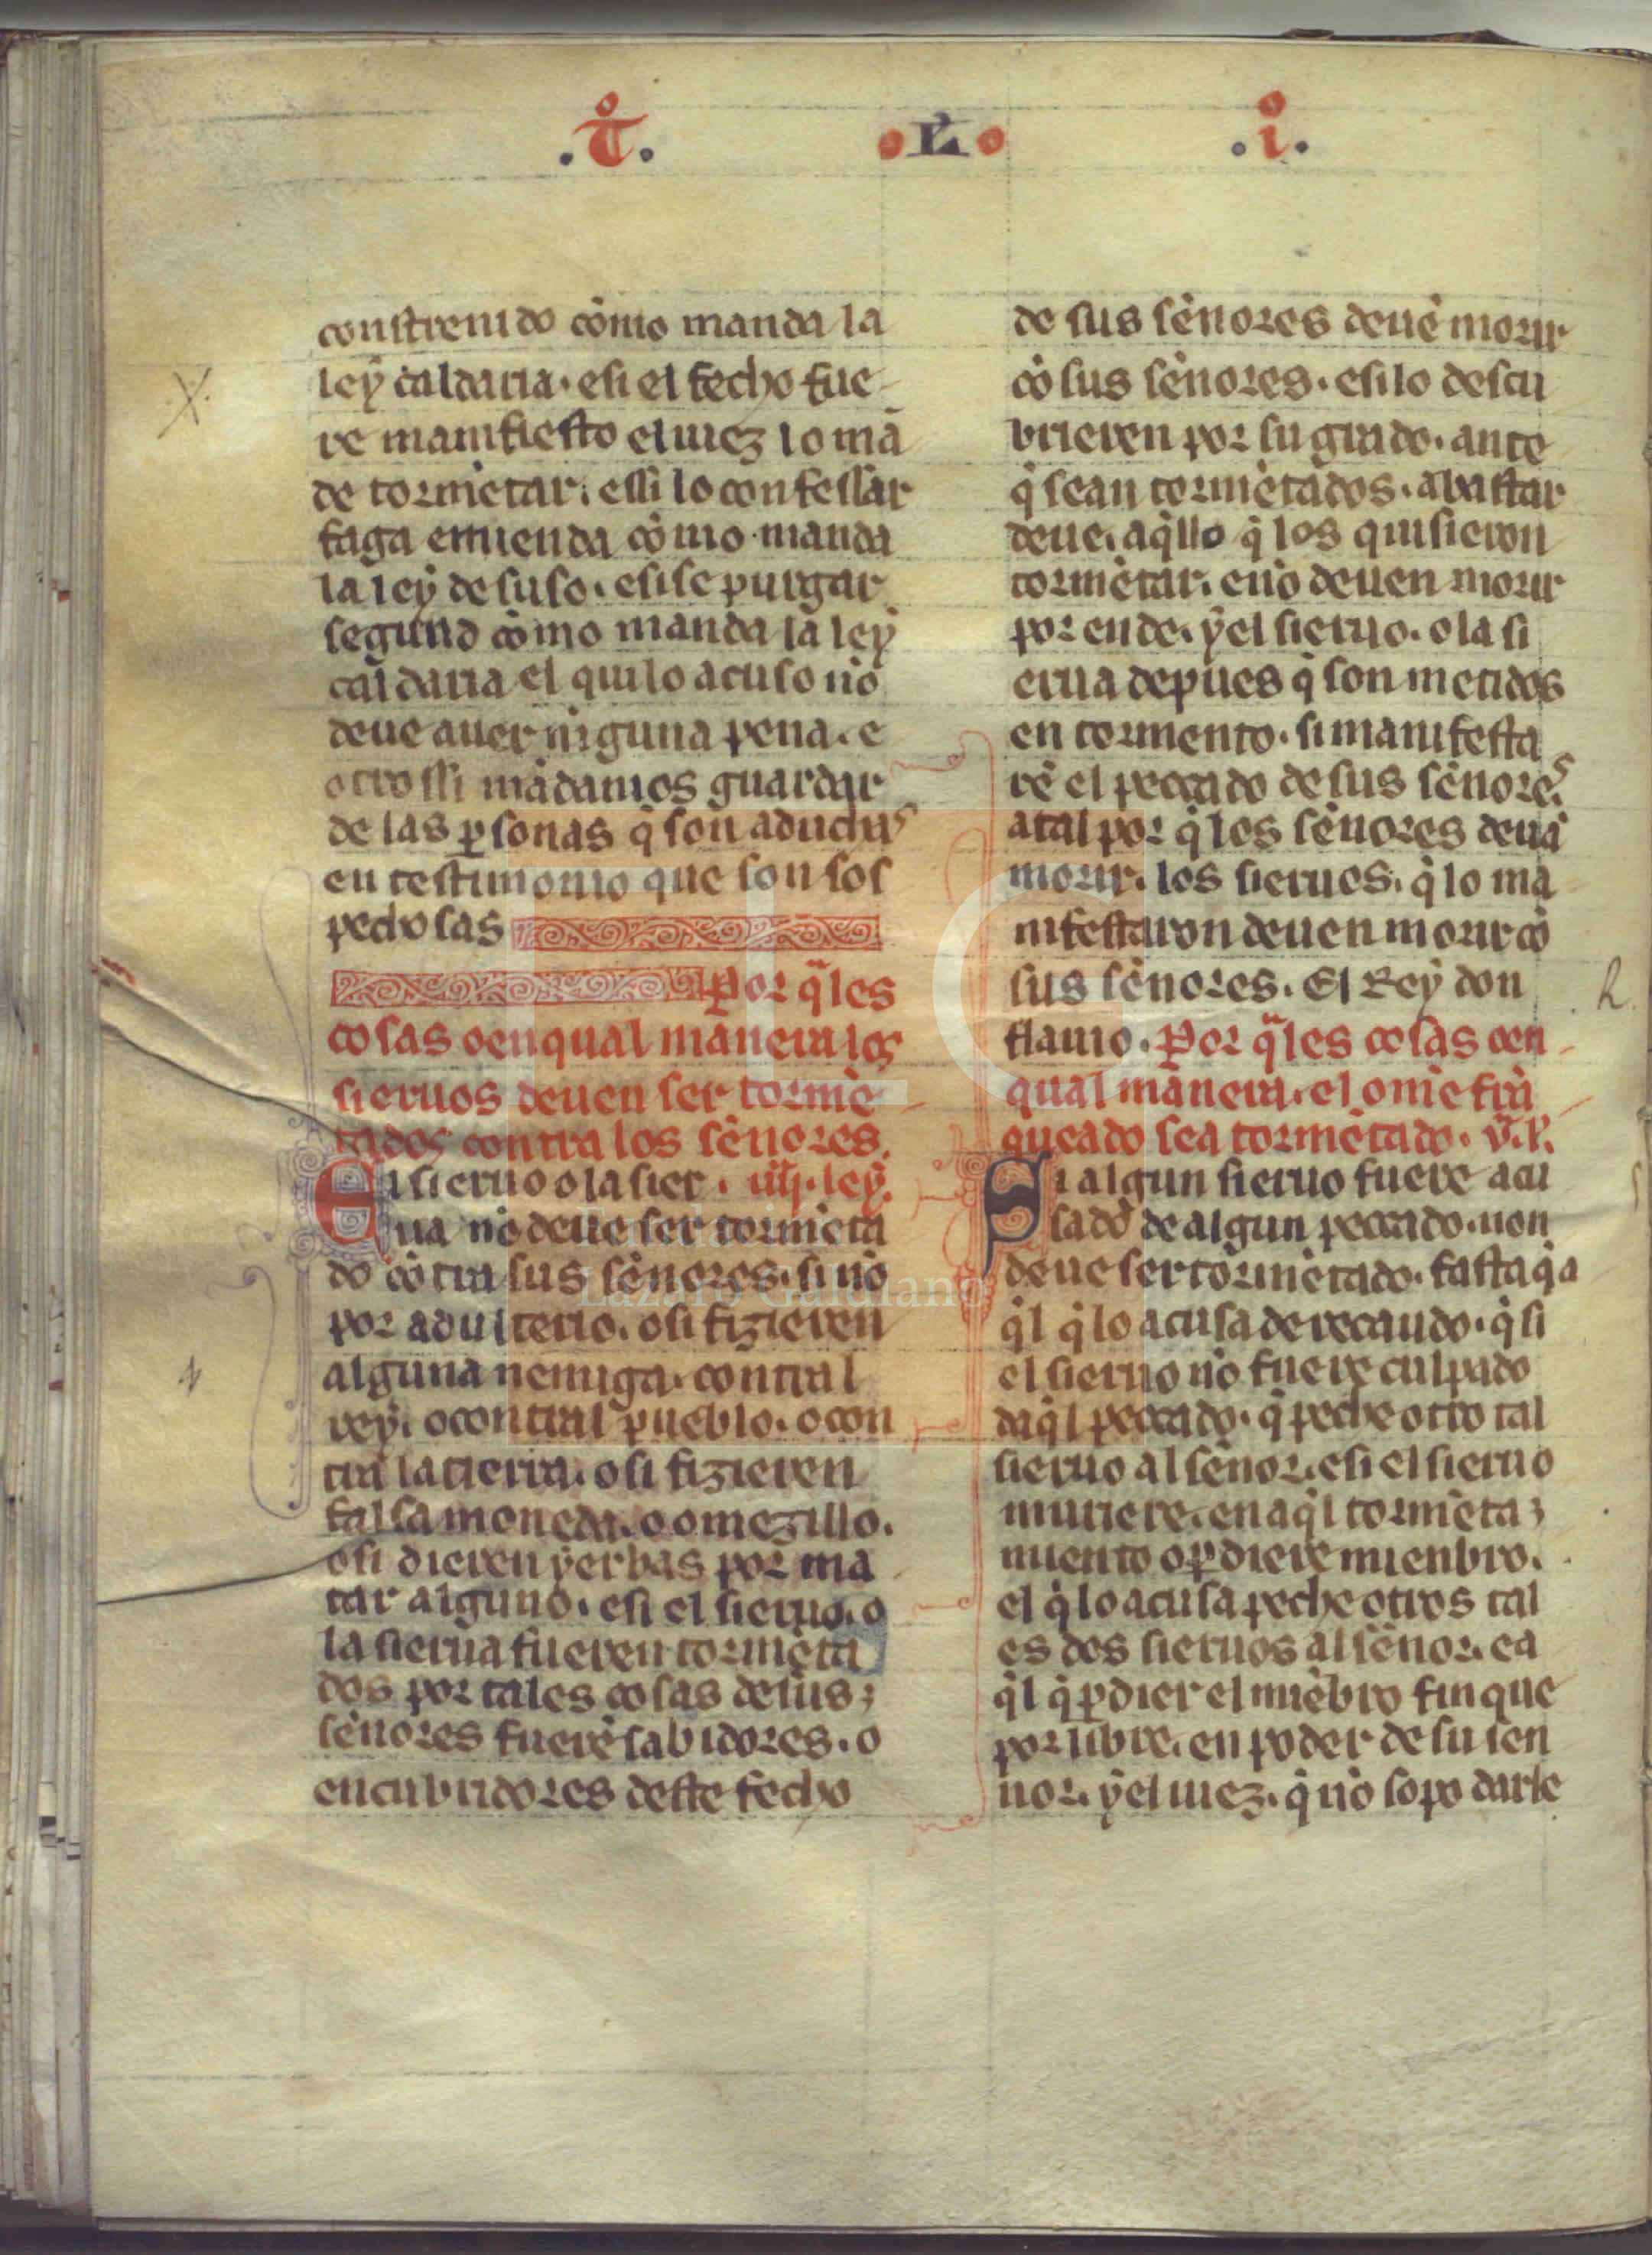 .T̊. .L. .i̊.
constrenido cõmo manda la
ley caldaria. esi el fecho fue
re manifiesto el iuez lo mã
de tormẽtar. essi lo confessar
faga emienda cõmo manda
la ley de suso. esise purgar
segund cõmo manda la ley
caldaria el quilo acuso nõ
deue auer nĩguna pena. e
otrossi mãdamos guardar
de las ꝑsonas q̃ son aduchas
en testimonio que son sos
pechosas
Por q̃les
cosas oenqual manera los
sieruos deuen ser tormẽ
tados contra los sẽnores.
Ei sieruo o la sier. iiij. ley.
ua nõ deue ser tormẽta
do cõtra sus sẽnores. si nõ
por adulterio. osi fizieren
alguna nemiga. contral
rey. o contral pueblo. o con
tra la tierra. osi fizieren
falsa moneda. o omezillo.
osi dieren yerbas por ma
tar alguno. esi el sieruo. o
la sierua fueren tormẽta
dos por tales cosas de sus
sẽnores fuerẽ sabidores. o
encubridores deste fecho
de sus sẽnores deuẽ morir
cõ sus sẽnores. esilo descu
brieren por su grado. ante
q̃ sean tormẽtados. abastar
deue. aq̃llo q̃ los quisieron
tormẽtar. enõ deuen morir
por ende. yel sieruo. o la si
erua depues q̃ son metidos
en tormento. si manifesta
rẽ el peccado de sus sẽnores.
atal por q̃ los sẽnores deuã
morir. los sieruos. q̃ lo ma
nifestaron deuen morir cõ
sus sẽnores. El Rey don
flauio. Por q̃les cosas oen
qual manera. el omẽ frã
queado sea tormẽtado. v. l.
Si algun sieruo fuere acu
sado de algun peccado. non
deue ser tormẽtado. fasta q̃ a
q̃l q̃ lo acusa de recaudo. q̃ si
el sieruo nõ fuere culpado
daq̃l peccado. q̃ peche otro tal
sieruo al sẽnor. esi el sieruo
muriere. en aq̃l tormẽta
miento o ꝑdiere mienbro.
el q̃ lo acusa peche otros tal
es dos sieruos al sẽnor. ea
q̃l q̃ ꝑdier el miẽbro finque
por libre. en poder de su sen
nor. yel iuez. q̃ nõ sopo darle
h.
FLG
Fundación
Lázaro Galdiano